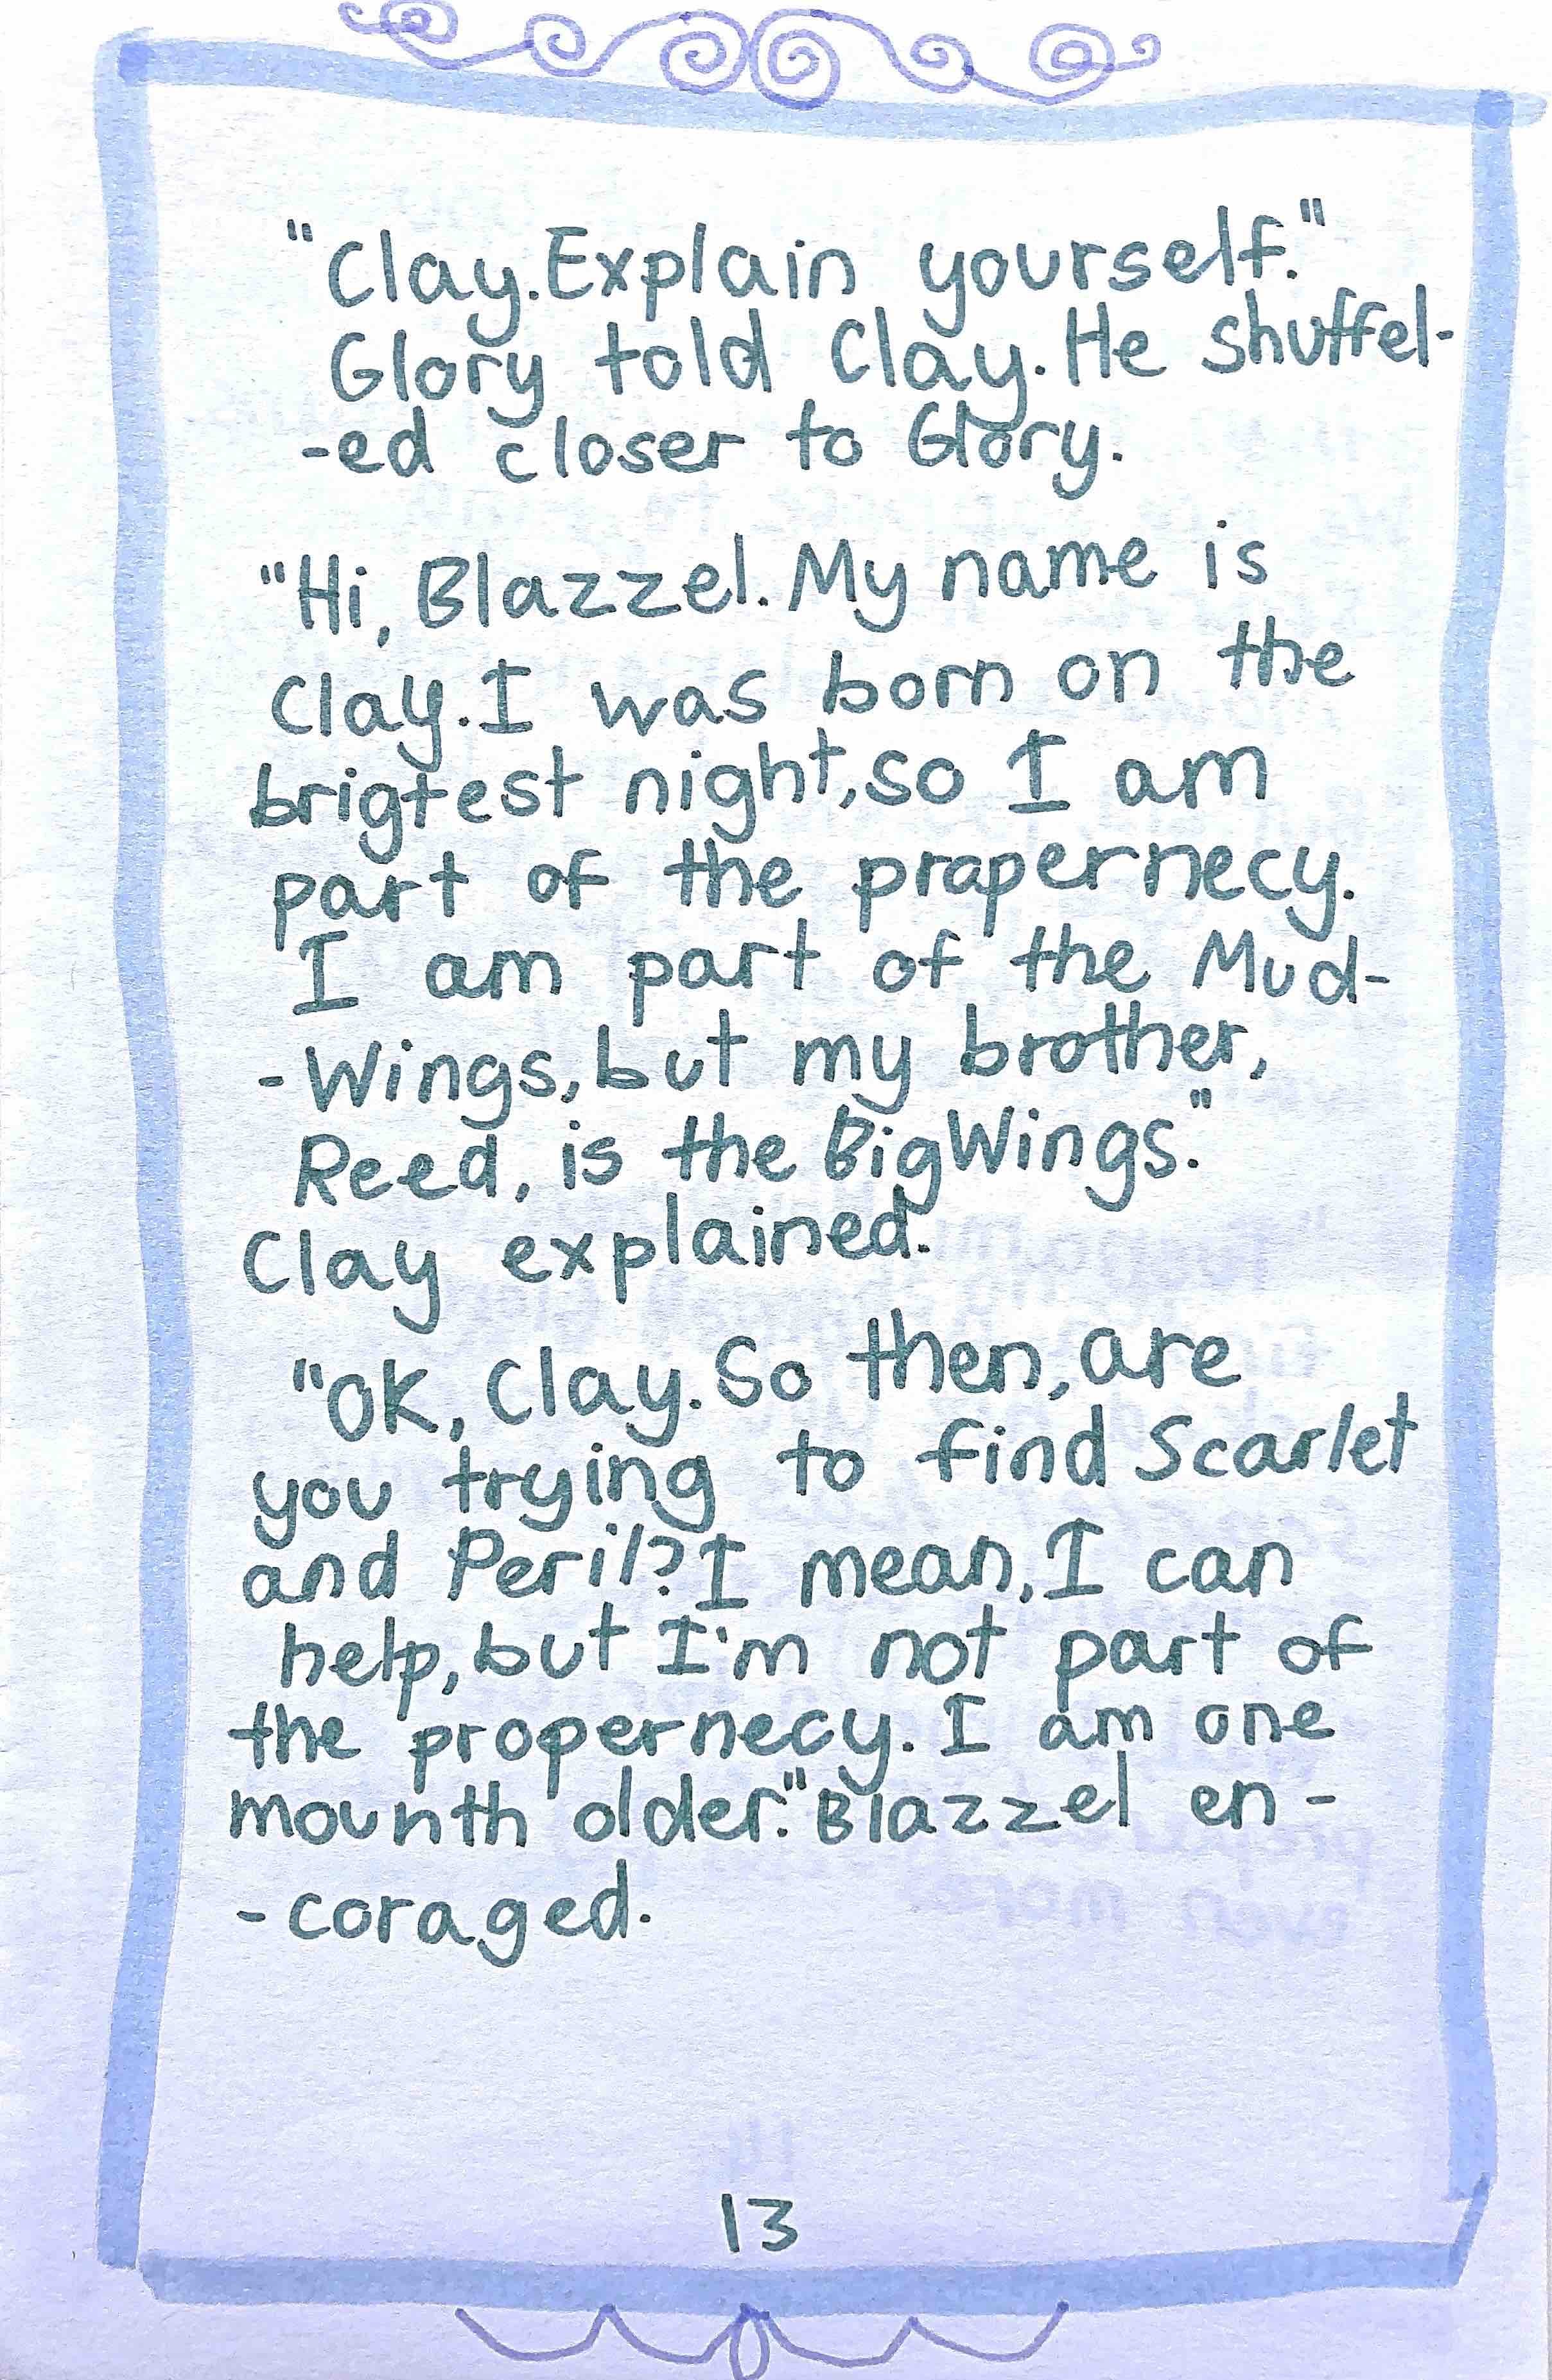 "Clay.Explain yourself."
Glory told Clay. He shuffel-
-ed closer to Glory.
"Hi, Blazzel. My name is
Clay. I was born on the
brigtest night, so I am
part of the prapernecy.
I am part of the Mud-
-Wings, but my brother,
Reed, is the BigWings."
Clay explained.
"OK, Clay. So then, are
you trying to find Scarlet
and Peril? I mean, I can
help, but I'm not part of
the propernecy. I am one
mounth older." Blazzel en-
-coraged.
13